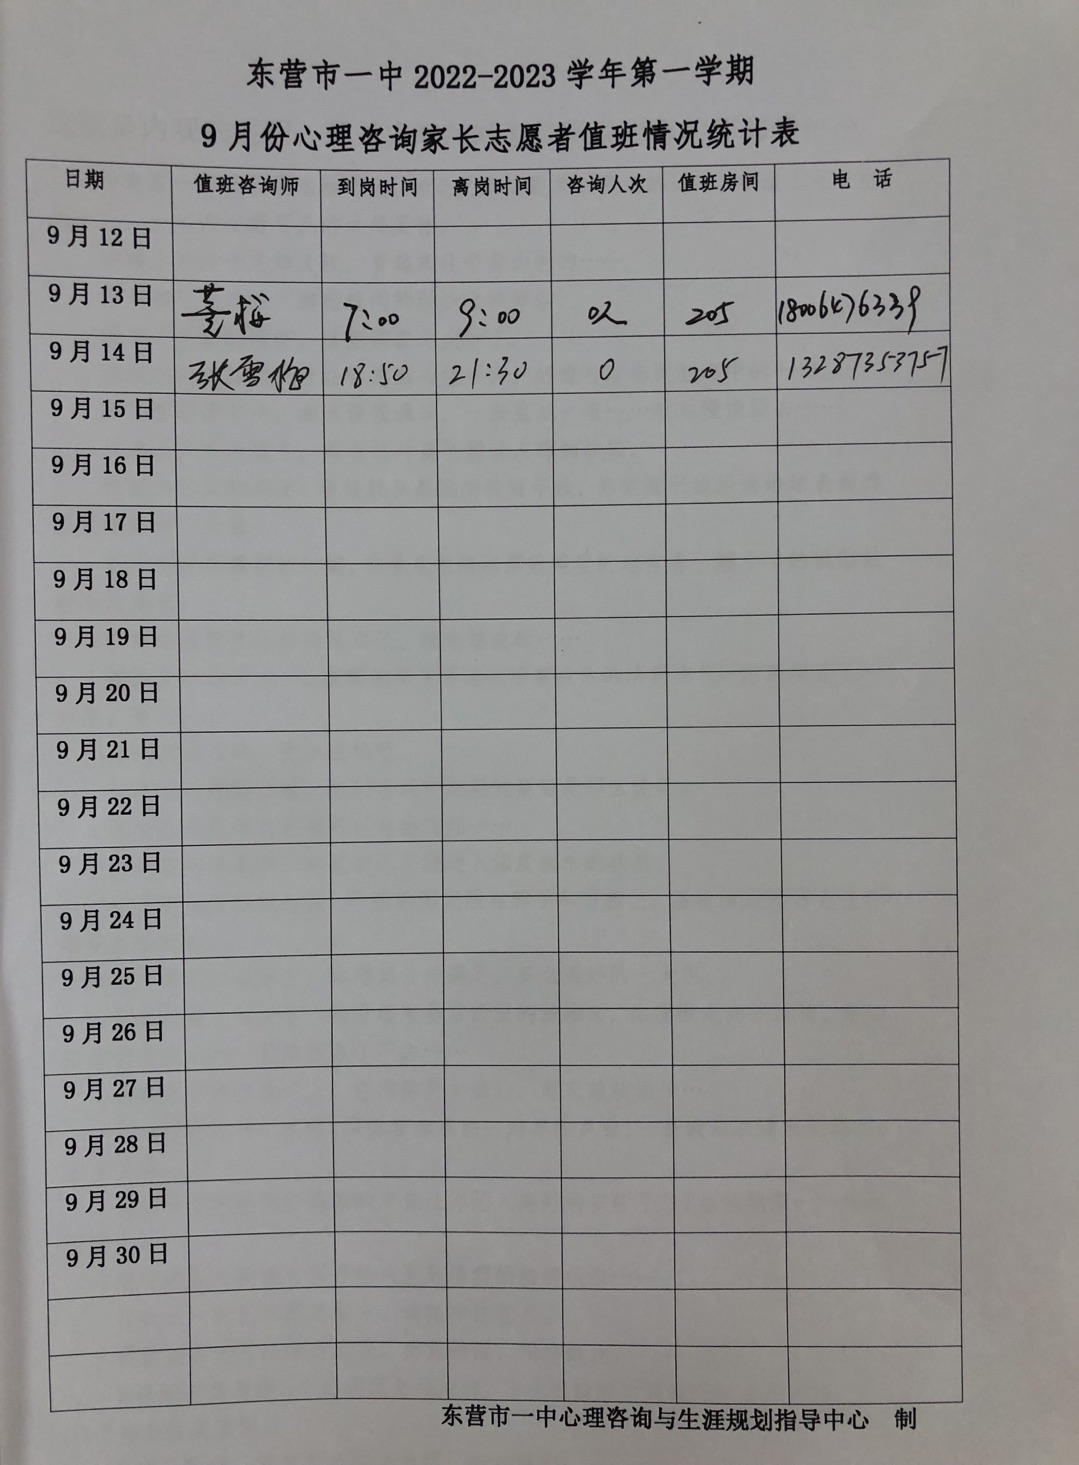 东营市一中 2022-2023 学年第一学期
9 月份心理咨询家长志愿者值班情况统计表
日期 值班咨询师 到岗时间 离岗时间 咨询人次 值班房间 电 话
9 月 12 日
9 月 13 日 7:00 9:00 205 18006476339
9 月 14 日 张雪梅 18:50 21:30 0 205 13287353757
9 月 15 日
9 月 16 日
9 月 17 日
9 月 18 日
9 月 19 日
9 月 20 日
9 月 21 日
9 月 22 日
9 月 23 日
9 月 24 日
9 月 25 日
9 月 26 日
9 月 27 日
9 月 28 日
9 月 29 日
9 月 30 日
东营市一中心理咨询与生涯规划指导中心 制